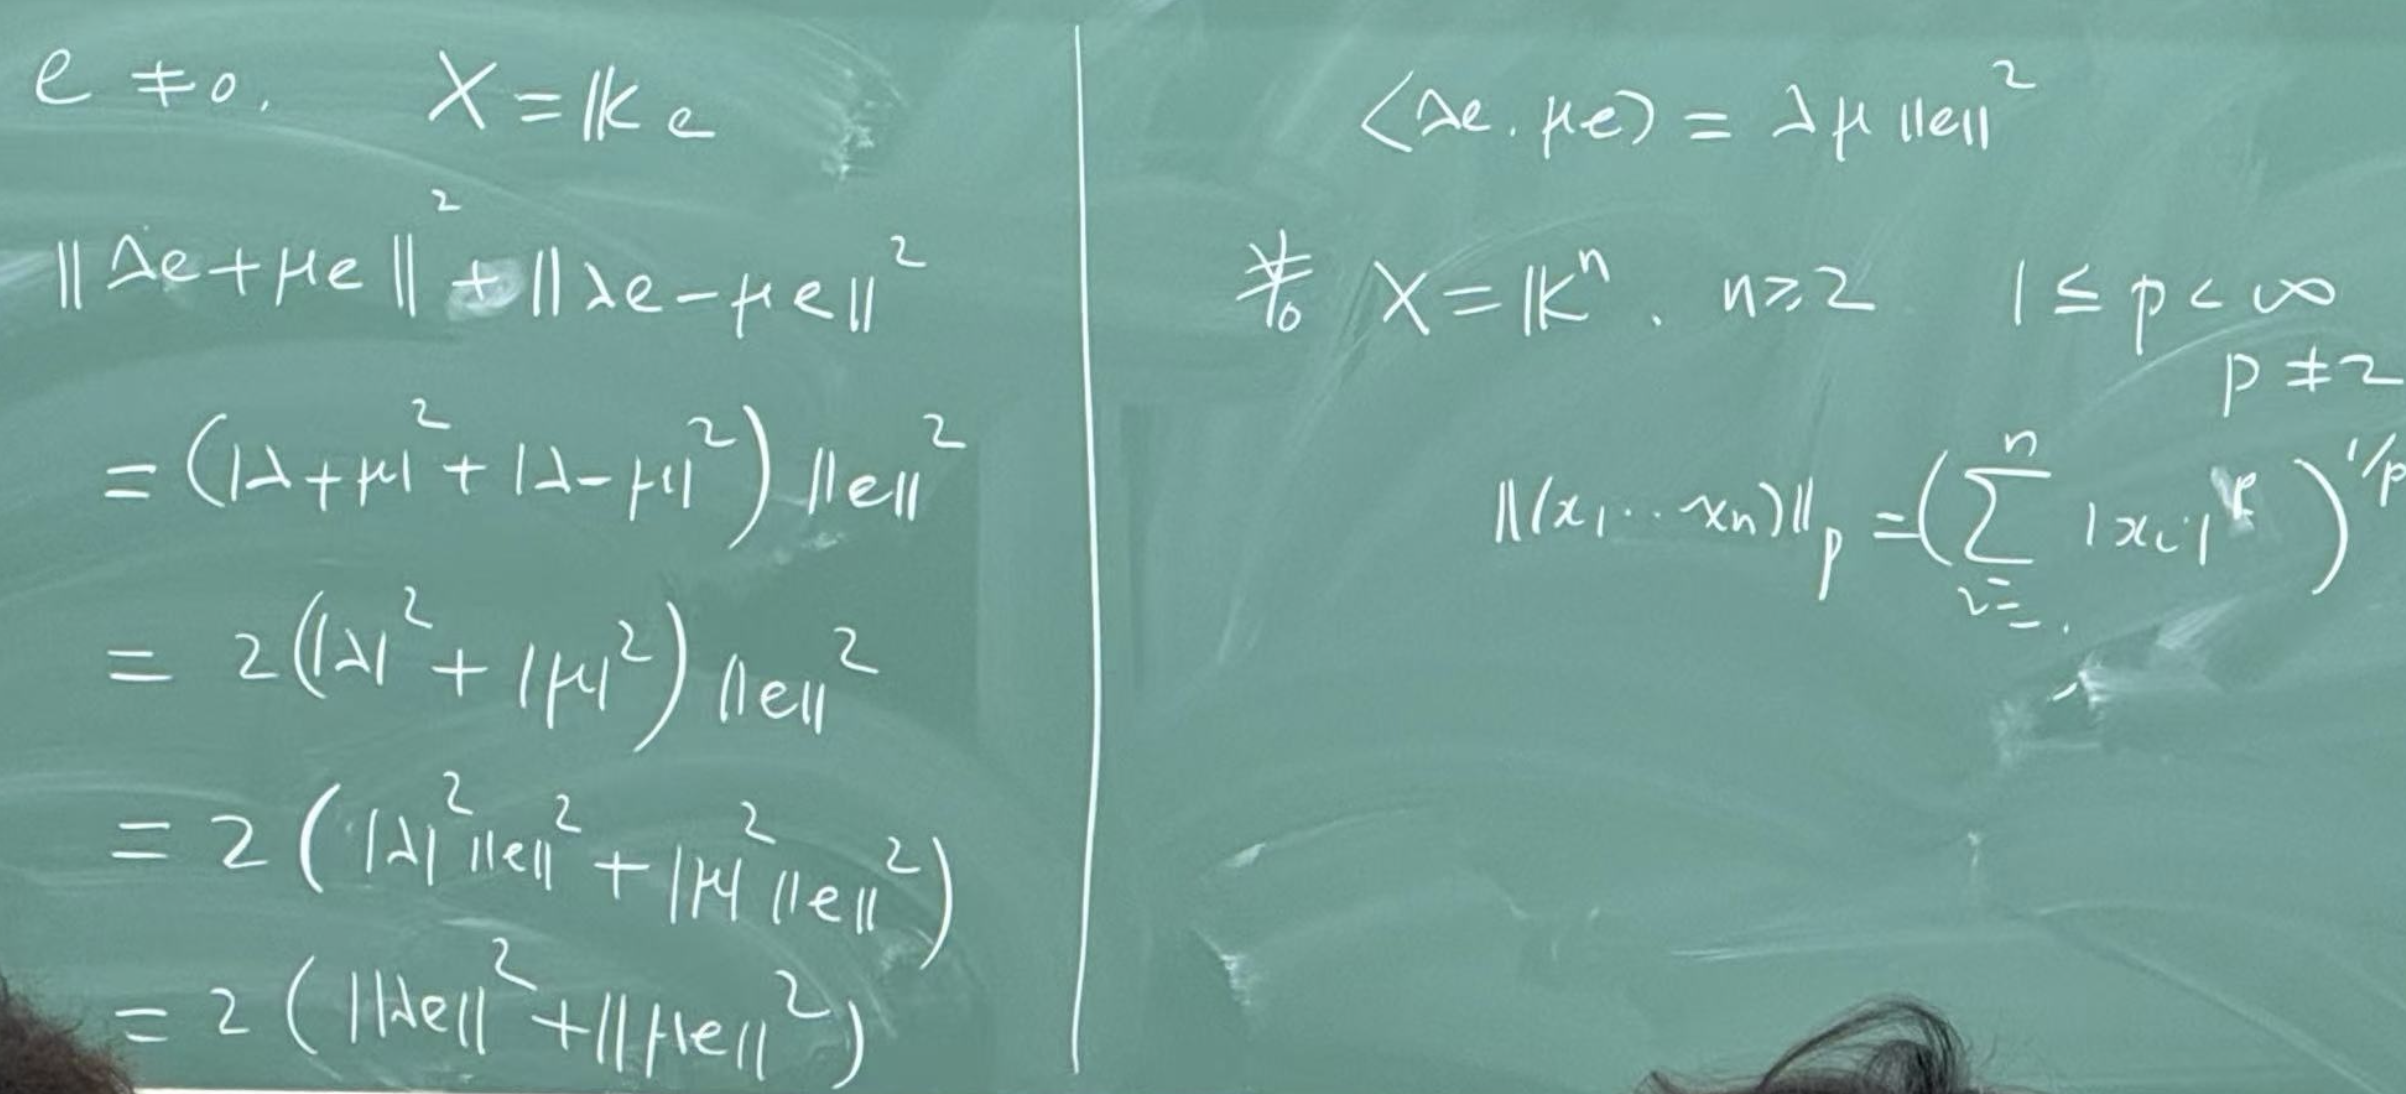 e ≠ 0. X = 𝕂e
‖λe + μe‖² + ‖λe - μe‖²
= (|λ + μ|² + |λ - μ|²) ‖e‖²
= 2(|λ|² + |μ|²) ‖e‖²
= 2(|λ|²‖e‖² + |μ|²‖e‖²)
= 2(‖λe‖² + ‖μe‖²)
⟨λe, μe⟩ = λμ‖e‖²
X = 𝕂ⁿ. n ⩾ 2 1 ≤ p < ∞
p ≠ 2
‖(x₁ ‥ xₙ)‖ₚ = (∑ⁿᵢ₌ |xᵢ|ᵖ)^{1/p}